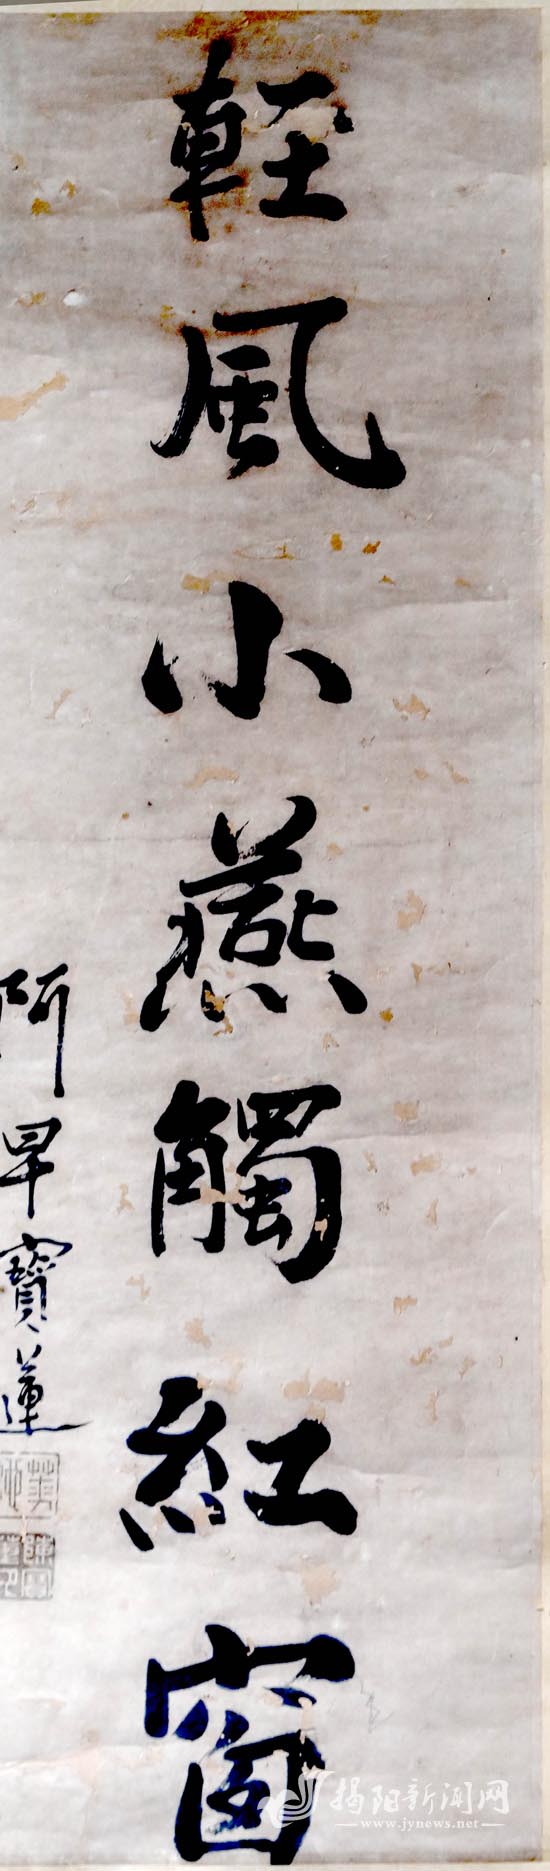 輕風小燕觸紅窗
阿旱寶蓮
揭阳新闻网
www.jynews.net